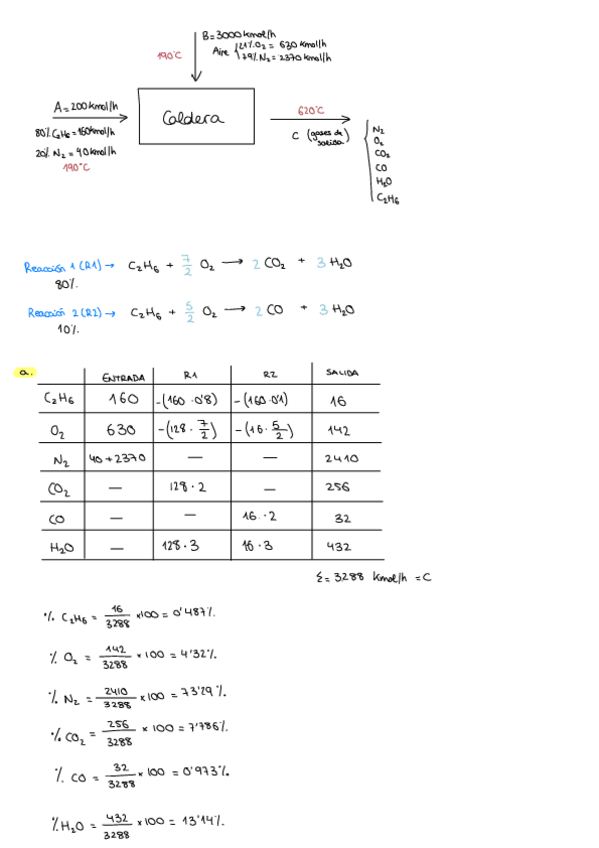 B=3000 kmol/h
Aire { 21% O₂ = 630 kmol/h
79% N₂ = 2370 kmol/h
190°C
A = 200 kmol/h
80% C₂H₆ = 160 kmol/h
20% N₂ = 40 kmol/h
190°C
Caldera
620°C
C (gases de salida)
N₂
O₂
CO₂
CO
H₂O
C₂H₆
Reacción 1 (R1) → C₂H₆ + 7/2 O₂ → 2 CO₂ + 3 H₂O
80%
Reacción 2 (R2) → C₂H₆ + 5/2 O₂ → 2 CO + 3 H₂O
10%
a.
ENTRADA R1 R2 SALIDA
C₂H₆ 160 -(160·0'8) -(160·0'1) 16
O₂ 630 -(128·7/2) -(16·5/2) 142
N₂ 40+2370 — — 2410
CO₂ — 128·2 — 256
CO — — 16·2 32
H₂O — 128·3 16·3 432
Σ = 3288 kmol/h = C
% C₂H₆ = 16/3288 ×100 = 0'487%.
% O₂ = 142/3288 × 100 = 4'32%.
% N₂ = 2410/3288 × 100 = 73'29%.
% CO₂ = 256/3288 × 100 = 7'786%.
% CO = 32/3288 × 100 = 0'973%.
% H₂O = 432/3288 × 100 = 13'14%.